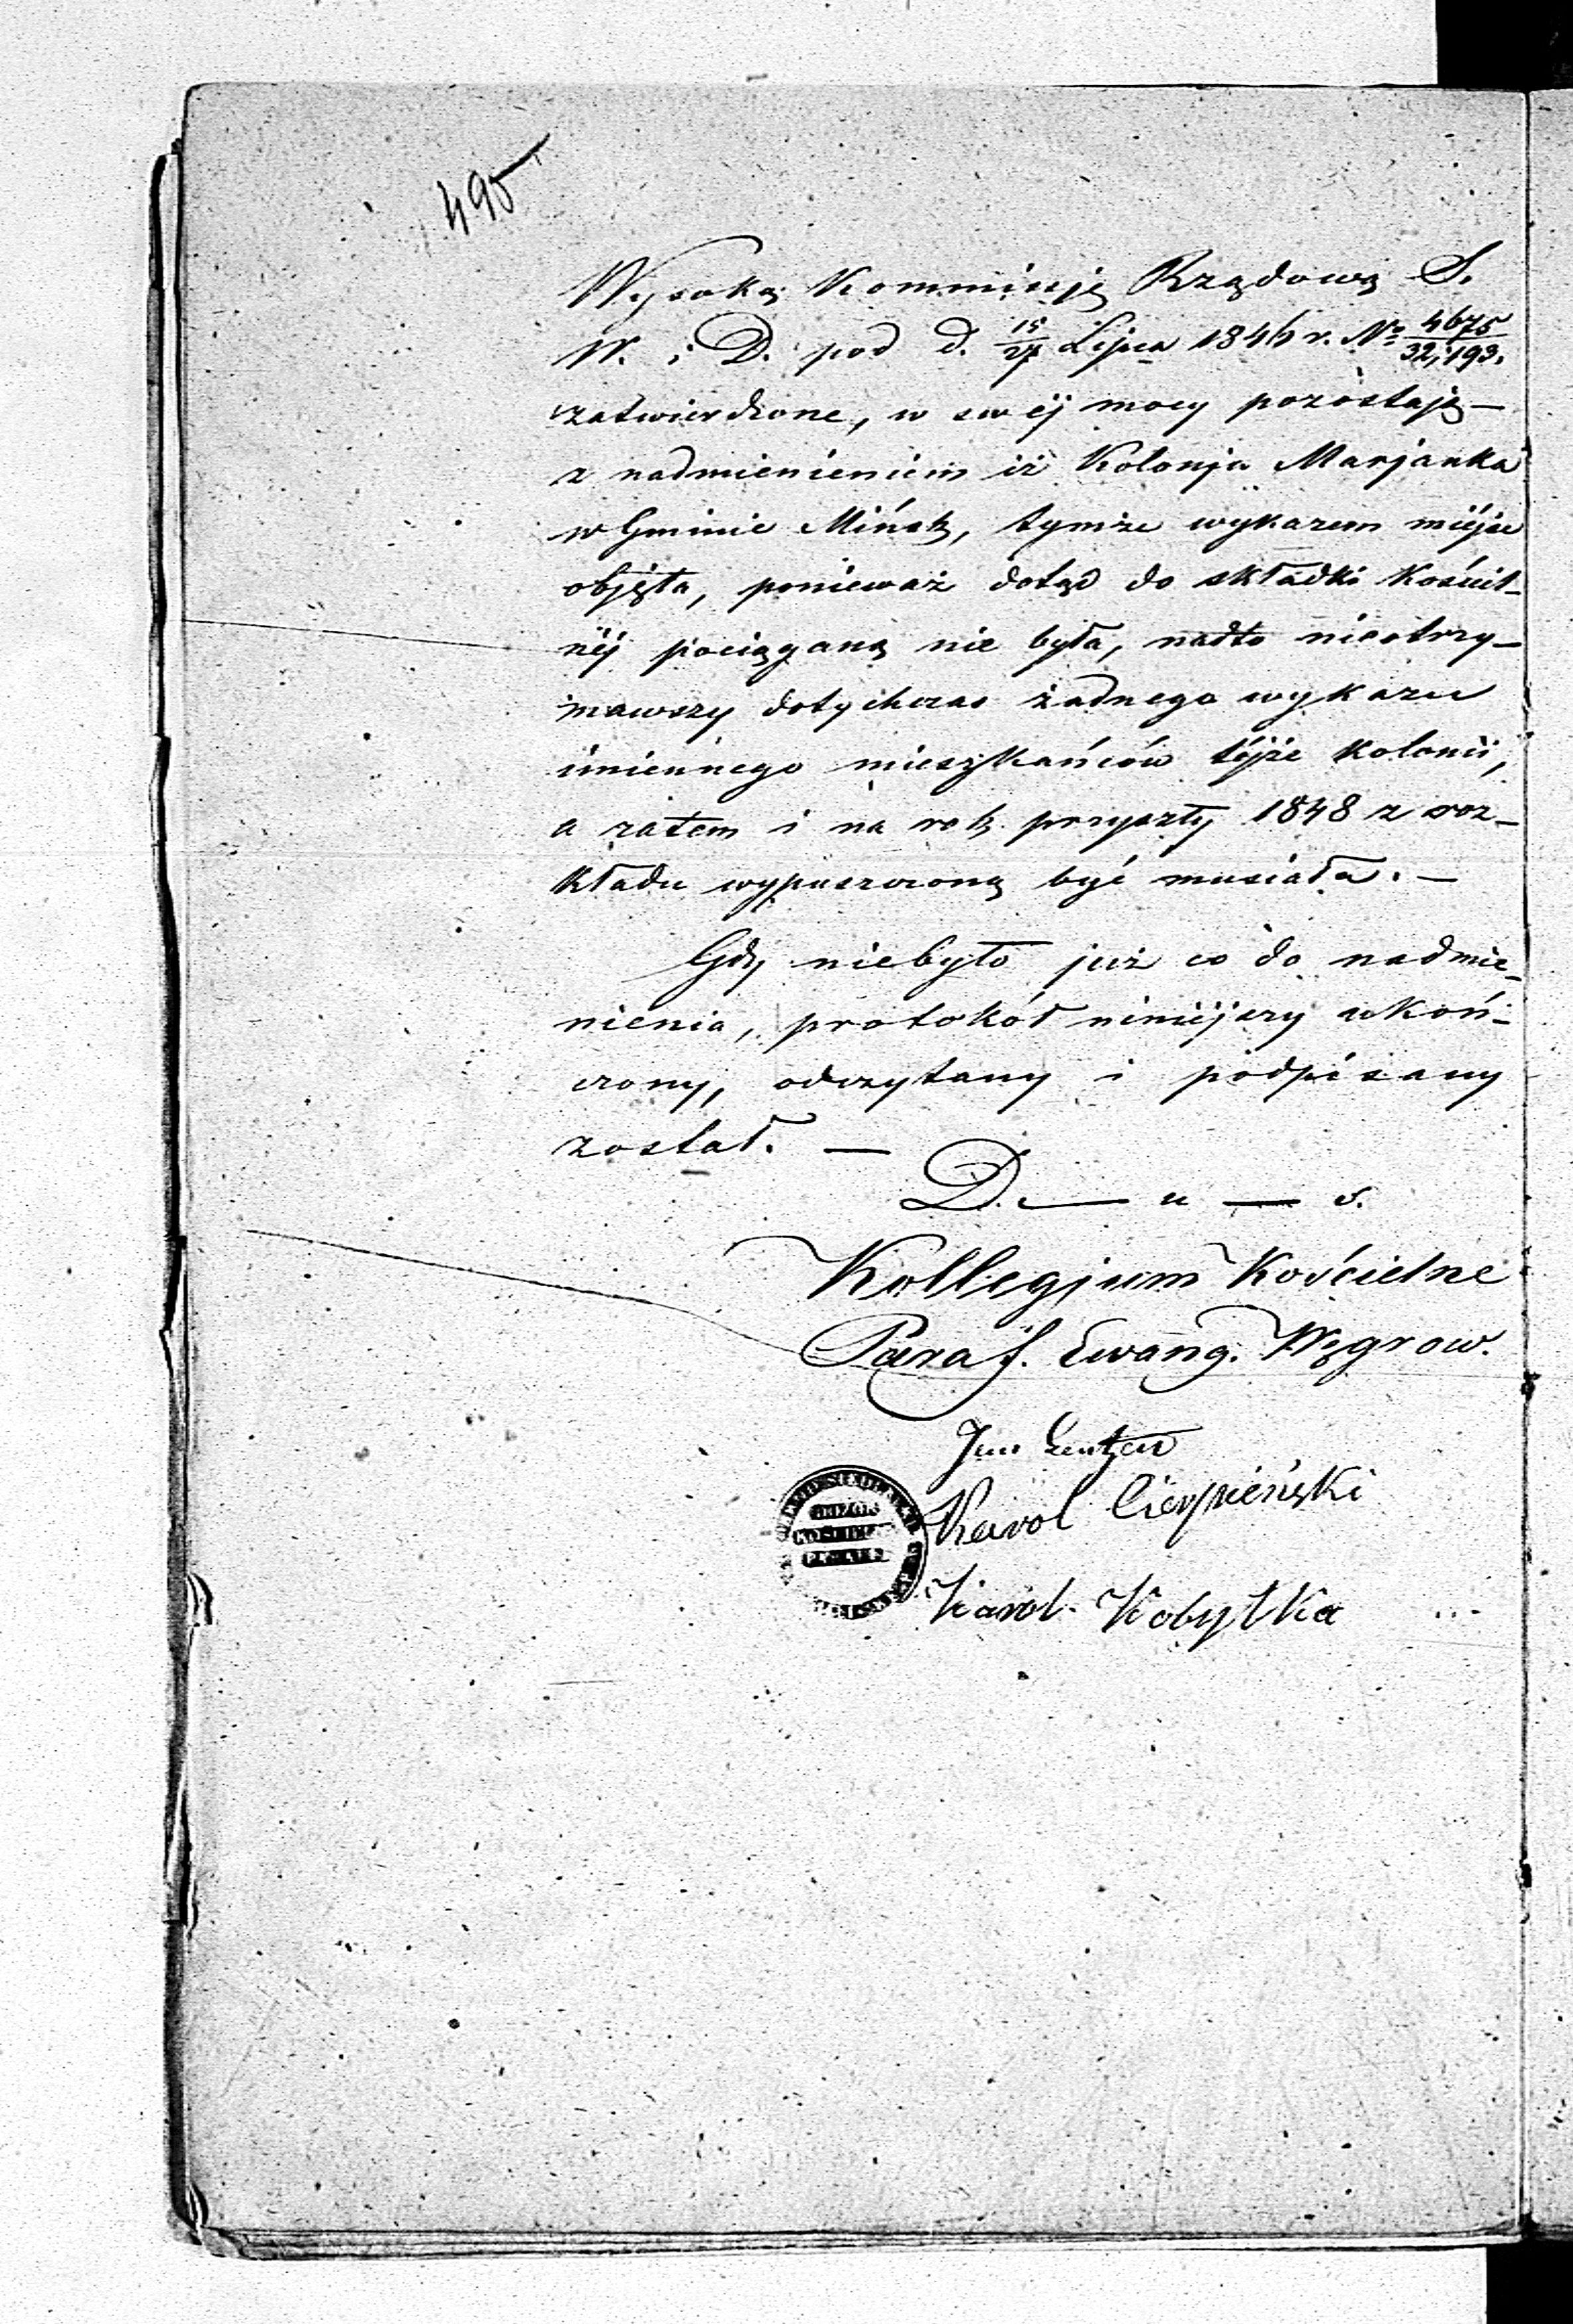 495
Wysoką Kommissję Rządową S.
W. i D. pod d. 15/27 Lipca 1846 r. No 4675/32,193.
zatwierdzone, w swéj mocy pozostają —
z nadmienieniem iż Kolonja Marjanka
w Gminie Mińsk, tymże wykazem miéjsc
objęta, ponieważ dotąd do składki Kościel-
néj pociąganą nie była, nadto nieotrzy-
mawszy dotychczas żadnego wykazu
imiennego mieszkańców téjże Kolonii,
a zatem i na rok przyszły 1848 z roz-
kładu wypuszczoną być musiała. —
Gdy niebyło już co do nadmie-
nienia, protokół niniéjszy ukoń-
czony, odczytany i podpisany
został. —
D. — u — s.
Kollegjum Kościelne
Paraf. Ewang. Węgrow.
Karol Cierpieński
Karol Kobyłka